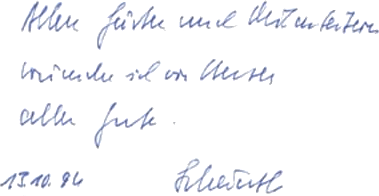 Allen Gästen und Mitarbeitern
wünsche ich von Herzen
alles Gute.
13.10.94